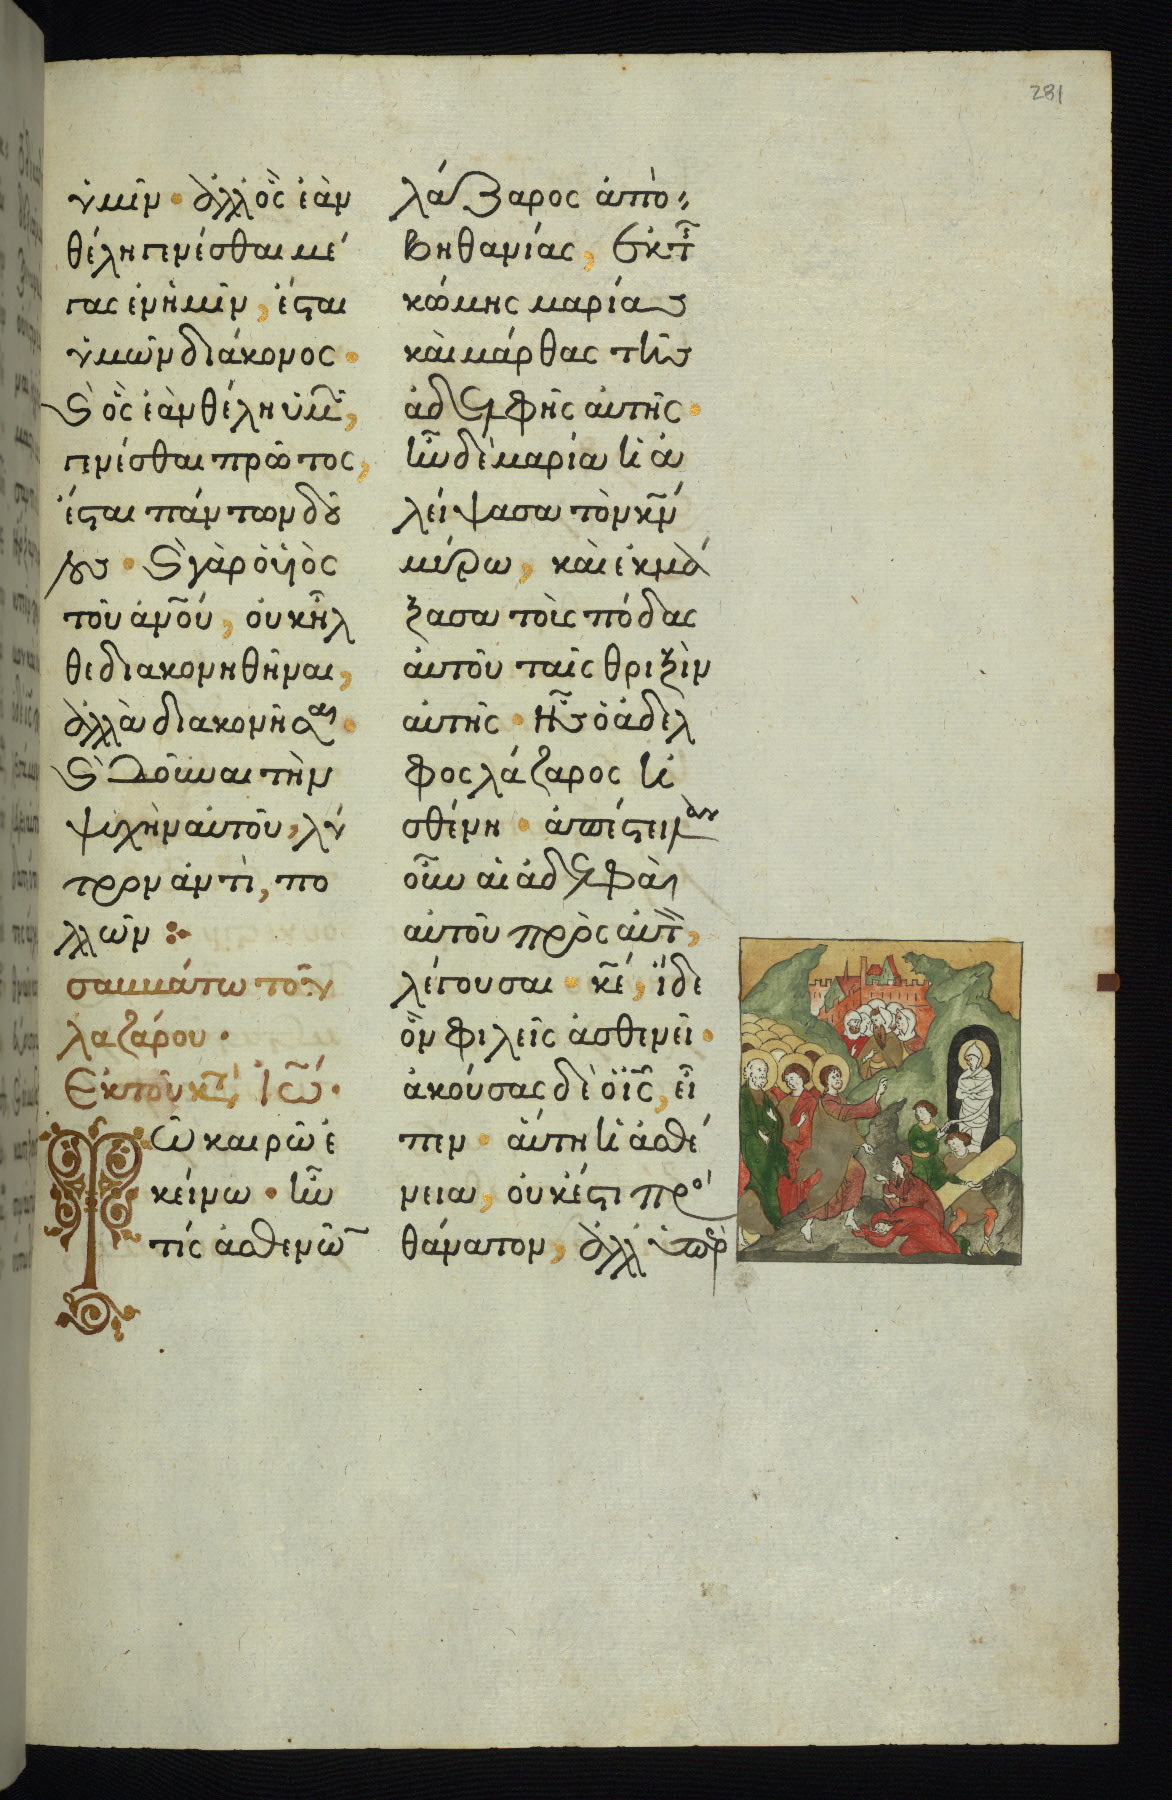 281
ὑμῖν · ἀλλ' ὃς ἐὰν
θέλη γενέσθαι μέ
γας ἐν ὑμῖν, ἔσται
ὑμῶν διάκονος ·
καὶ ὃς ἐὰν θέλη ὑμῶν,
γενέσθαι πρῶτος,
ἔσται πάντων δοῦ
λος · καὶ γὰρ ὁ υἱὸς
τοῦ ἀν̅ο̅υ̅, οὐκ ἦλ
θε διακονηθῆναι,
ἀλλὰ διακονῆσαι ·
καὶ δοῦναι τὴν
ψυχὴν αὐτοῦ, λύ
τρον ἀντὶ, πο
λλῶν :·
σαββάτω τοῦ
λαζάρου ·
Ἐκ τοῦ κατὰ Ἰω ·
Τῶ καιρῶ ἐ
κείνω · ἦν
τίς ἀσθενῶν
λάζαρος ἀπὸ
βηθανίας, ἐκ τῆς
κώμης μαρίας
καὶ μάρθας τῆς
ἀδελφῆς αὐτῆς ·
ἦν δὲ μαρία ἡ ἀ
λείψασα τὸν κ̅ν̅
μύρω, καὶ ἐκμά
ξασα τοὺς πόδας
αὐτοῦ ταῖς θριξὶν
αὐτῆς · ἧς ὁ ἀδελ
φος λάζαρος ἠ
σθένη · ἀπέστειλαν
οὖν αἱ ἀδελφαὶ
αὐτοῦ πρὸς αὐτὸν,
λέγουσαι · κ̅ε̅, ἴδε
ὃν φιλεῖς ἀσθενεῖ ·
ἀκούσας δὲ ὁ ι̅ς̅, εἶ
πεν · αὕτη ἡ ἀσθέ
νεια, οὐκ ἔστι πρὸς
θάνατον, ἀλλ' ὑπὲρ